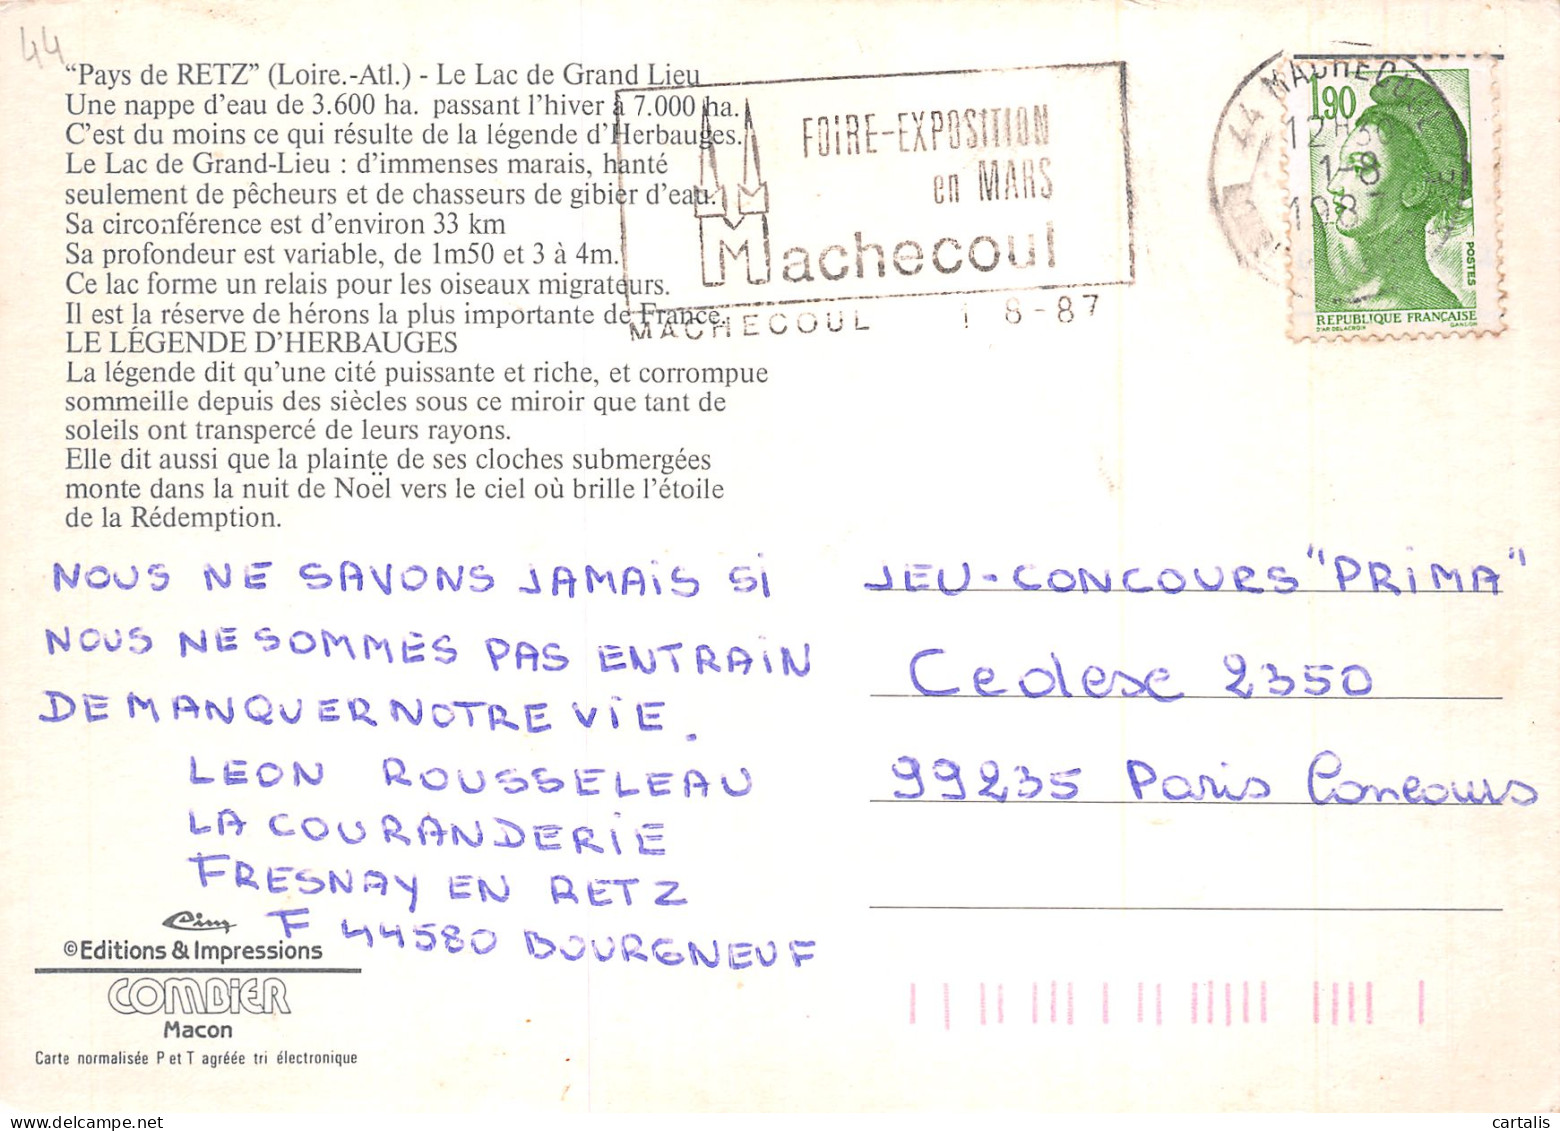 44
"Pays de RETZ" (Loire.-Atl.) - Le Lac de Grand Lieu
Une nappe d'eau de 3.600 ha. passant l'hiver à 7.000 ha.
C'est du moins ce qui résulte de la légende d'Herbauges.
Le Lac de Grand-Lieu : d'immenses marais, hanté
seulement de pêcheurs et de chasseurs de gibier d'eau.
Sa circonférence est d'environ 33 km
Sa profondeur est variable, de 1m50 et 3 à 4m.
Ce lac forme un relais pour les oiseaux migrateurs.
Il est la réserve de hérons la plus importante de France.
LE LÉGENDE D'HERBAUGES
La légende dit qu'une cité puissante et riche, et corrompue
sommeille depuis des siècles sous ce miroir que tant de
soleils ont transpercé de leurs rayons.
Elle dit aussi que la plainte de ses cloches submergées
monte dans la nuit de Noël vers le ciel où brille l'étoile
de la Rédemption.
FOIRE-EXPOSITION
en MARS
Machecoul
MACHECOUL 1 8-87
44 MACHECOUL
12H30
1-8
1987
1,90
POSTES
REPUBLIQUE FRANÇAISE
D'AP. DELACROIX GANDON
NOUS NE SAVONS JAMAIS SI
NOUS NE SOMMES PAS ENTRAIN
DE MANQUER NOTRE VIE.
LEON ROUSSELEAU
LA COURANDERIE
FRESNAY EN RETZ
F 44580 BOURGNEUF
JEU-CONCOURS "PRIMA"
Cedesc 2350
99235 Paris Concours
Cim
© Editions & Impressions
COMBIER
Macon
Carte normalisée P et T agréée tri électronique
cartalis
www.delcampe.net